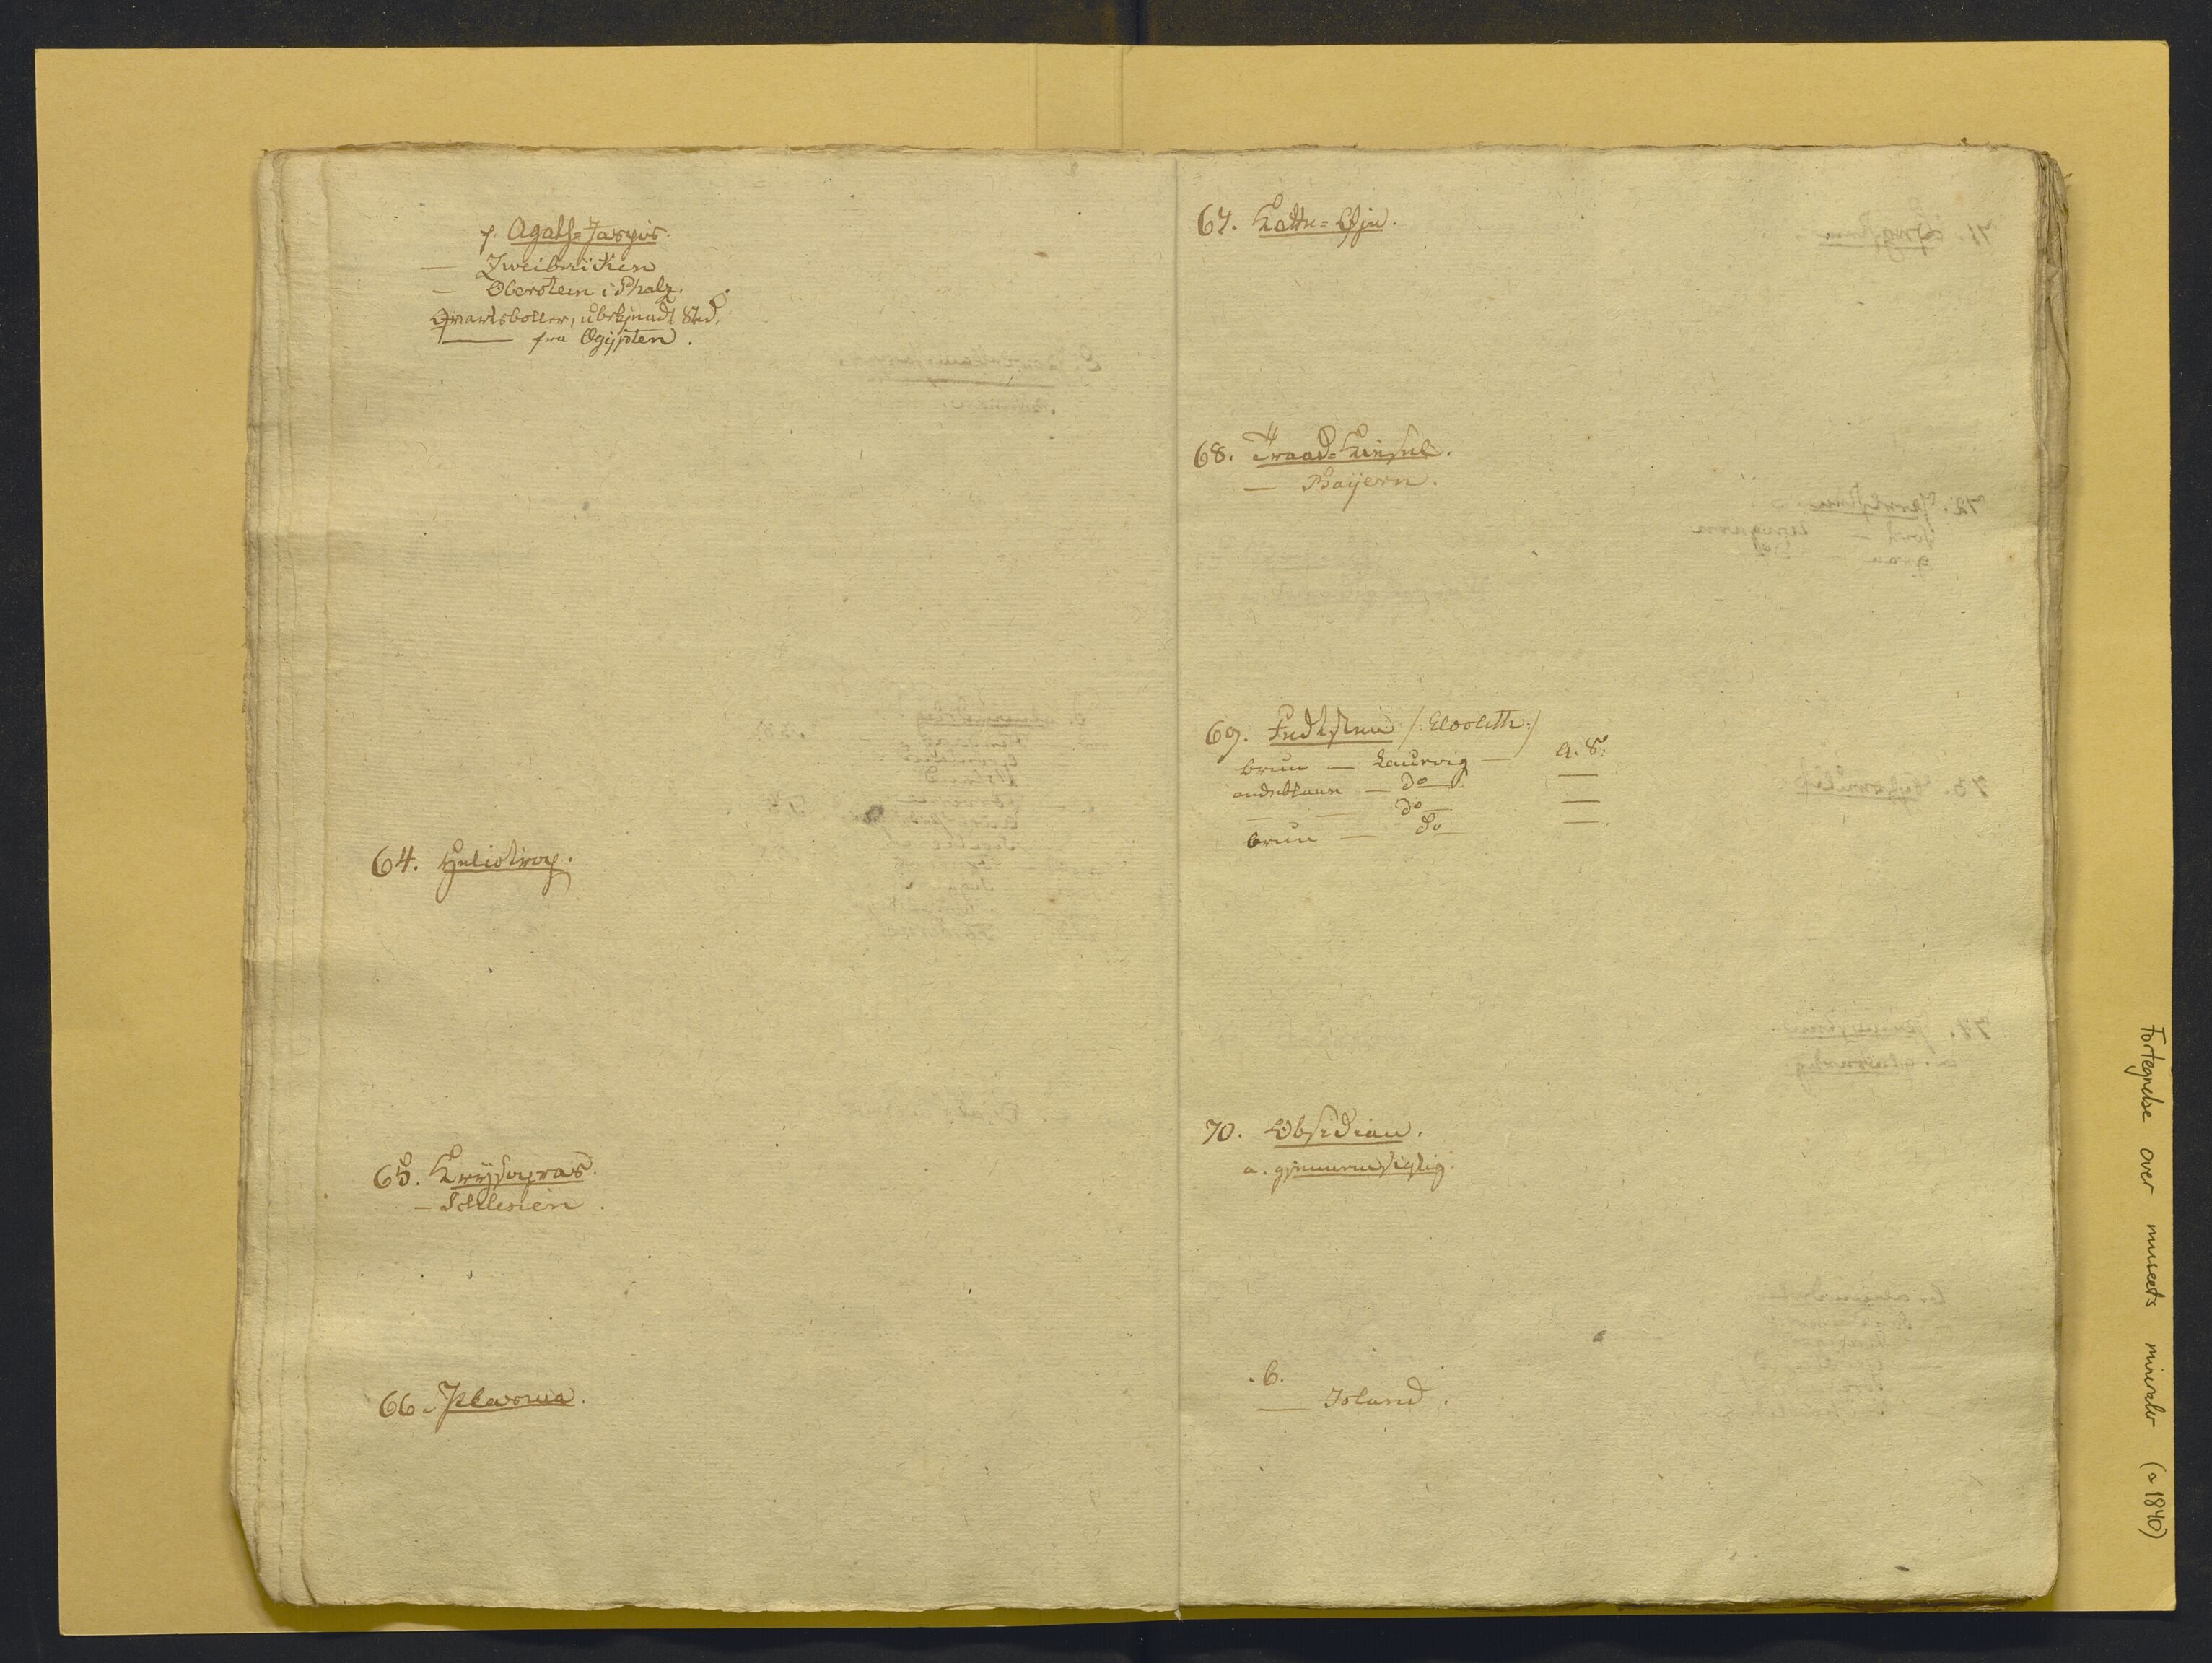 f. Agath=Jaspis.
— Zweibrücken
— Oberstein i Phalz.
Qvartsboller, ubekjendt Sted.
— fra Egijpten.
64. Heliotrop.
65. Krijsopras.
— Schlesien.
66. Plasma.
67. Katte=Øje.
68. Traad=Kiesel.
— Bayern.
69. Fedtsteen /: Eloolith :/
brun — Laurvig — A. S.
andeblaae — do —
— — do —
brun — do —
70. Obsidian.
a. gjennemsigtig.
b.
— Island.
Fortegnelse over museets mineraler (ca 1840)